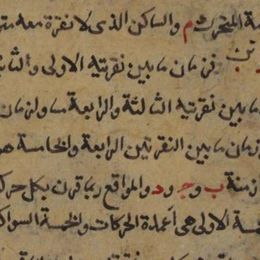 ـة المتحرك م والساكن الذى لا نقرة معه
فزمان ما بين نقرتيه الاولى والثا
ما بين نقرتيه الثالثة والرابعة
زمان ما بين النقرتين الرابعة والخامسة هو
ازمنة ب و ج و د والمواقع ربما قرن بكل حركة
ـسة الاولى هى أعمدة الحركات والخمسة السواكن